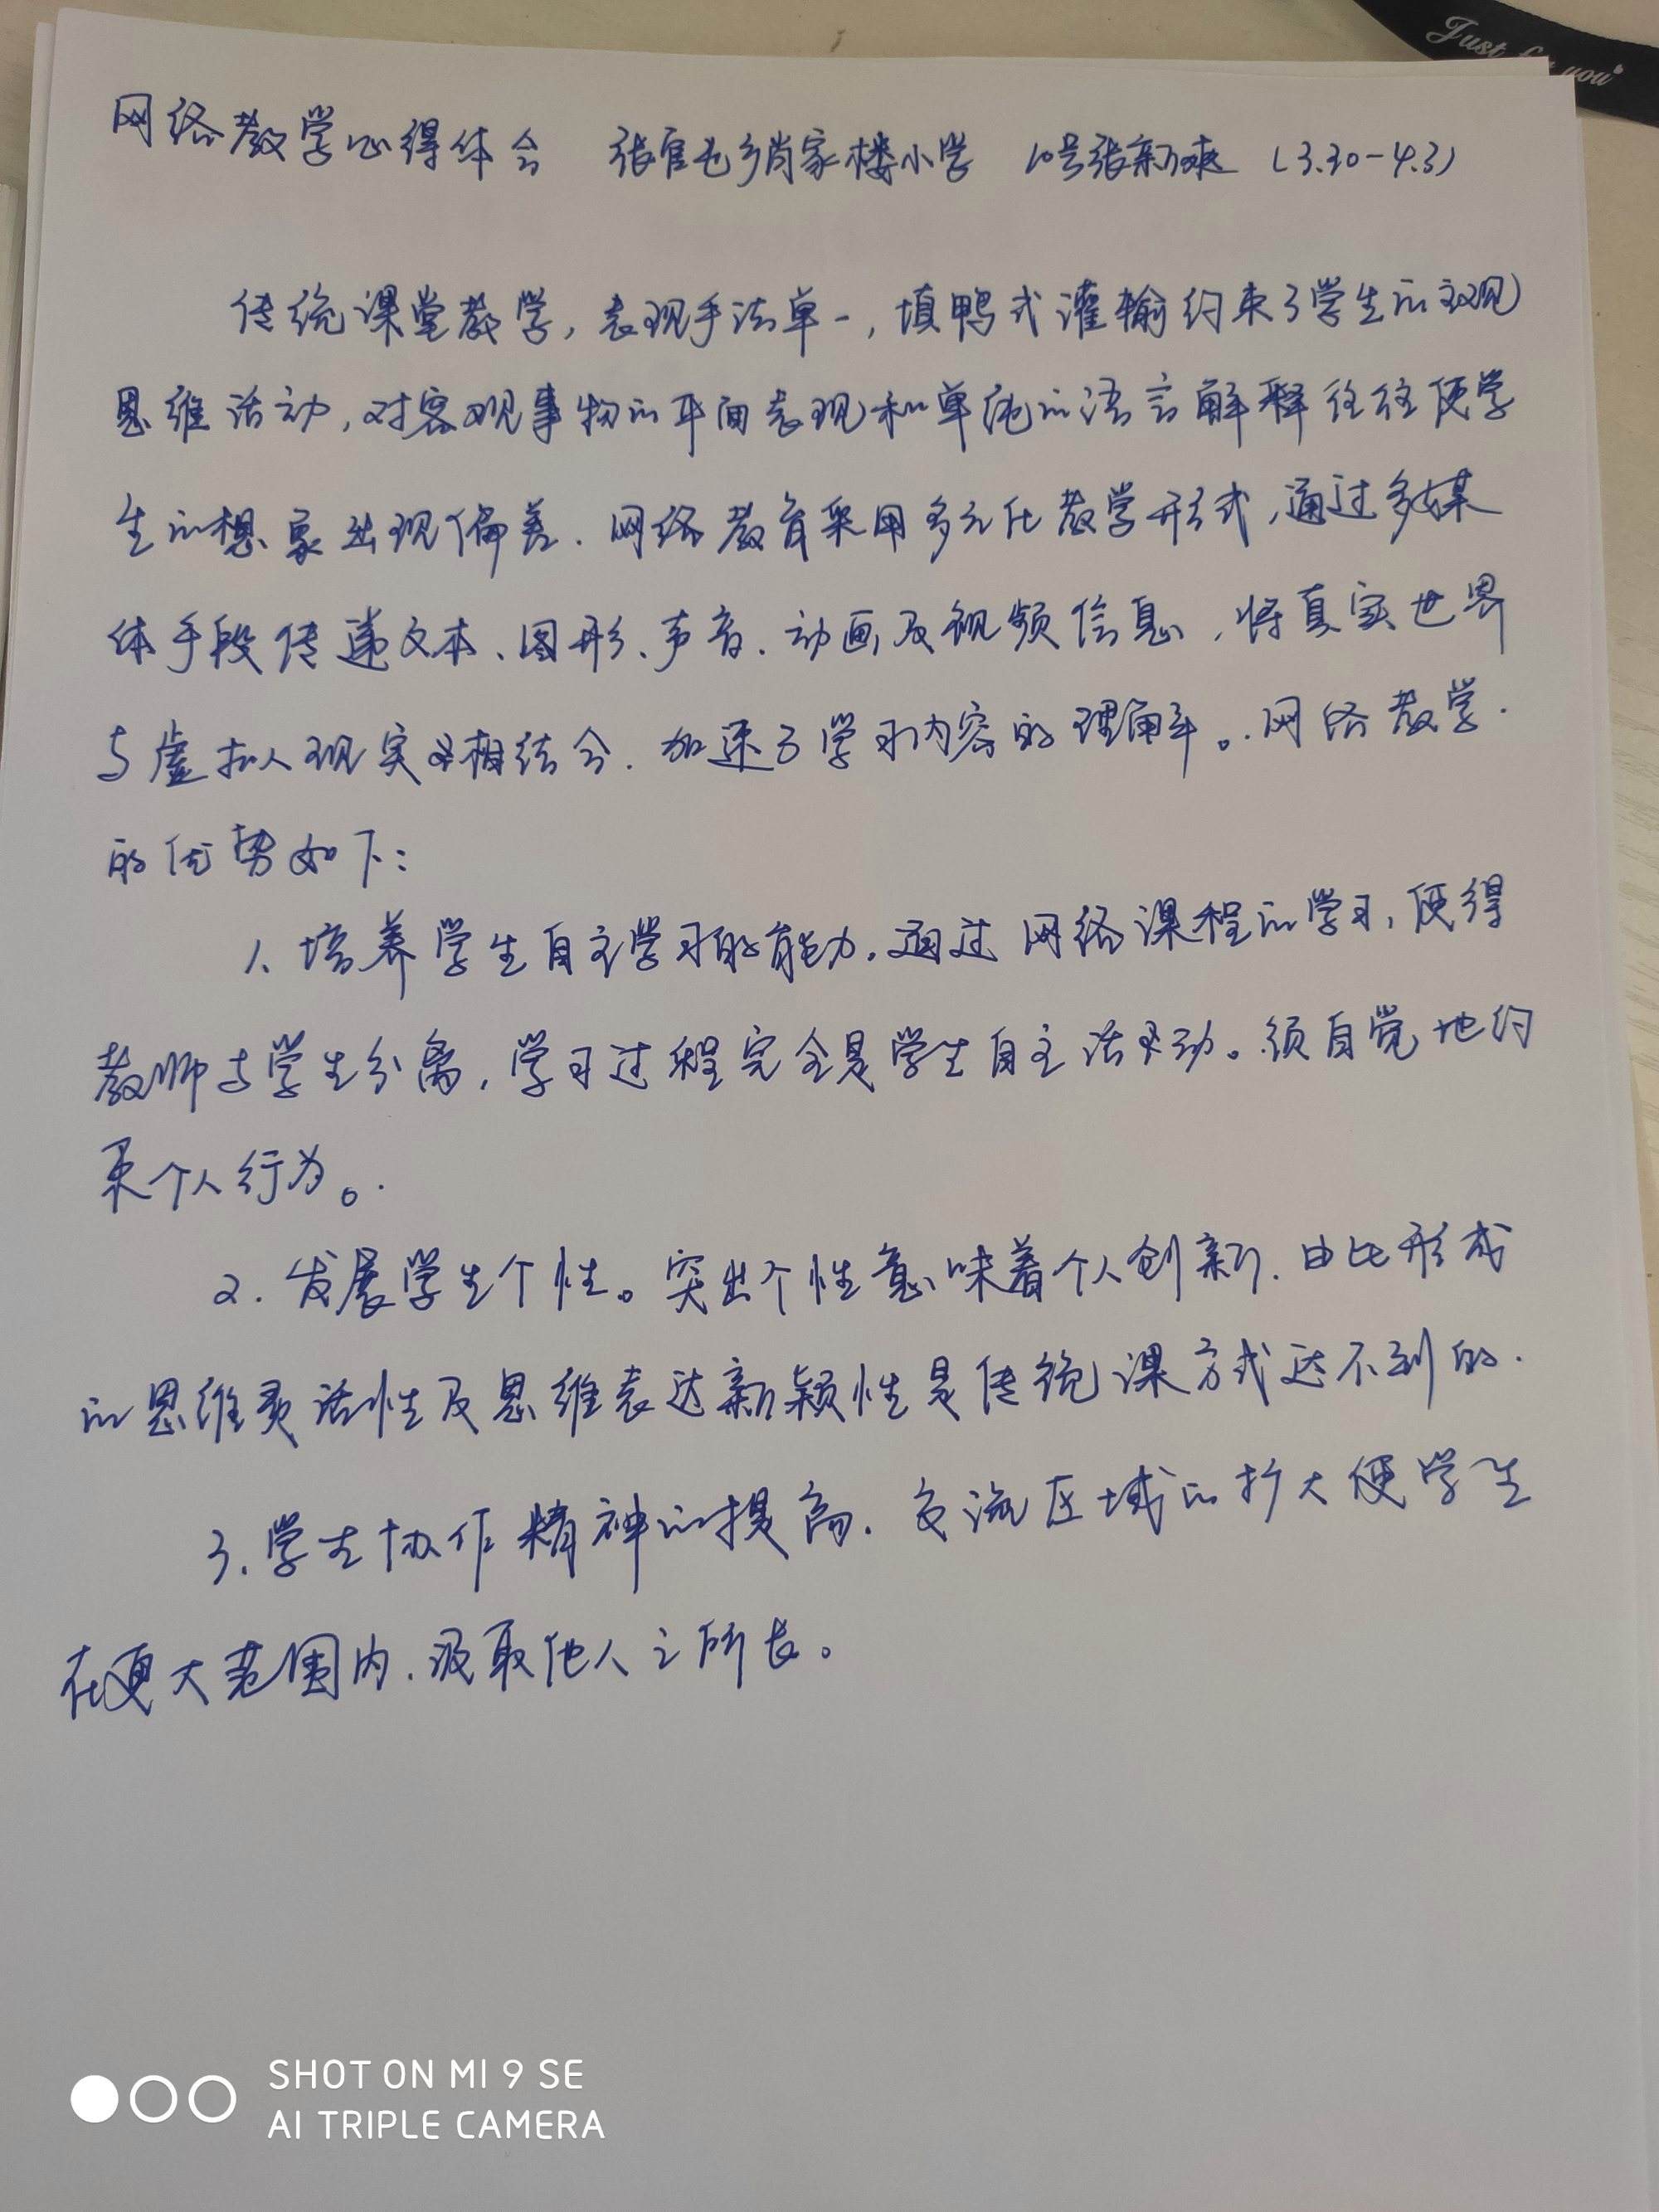 Just for you
网络教学心得体会 张官屯乡肖家楼小学 10号张新爽 (3.30-4.3)
传统课堂教学,表现手法单一,填鸭式灌输约束了学生的主观
思维活动,对客观事物的平面表现和单纯的语言解释往往使学
生的想象出现偏差.网络教育采用多元化教学形式,通过多媒
体手段传递文本、图形、声音、动画及视频信息,将真实世界
与虚拟现实相结合.加速了学习内容的理解。网络教学
的优势如下:
1、培养学生自主学习的能力.通过网络课程的学习,使得
教师与学生分离,学习过程完全是学生自主活动。须自觉地约
束个人行为。
2.发展学生个性。突出个性意味着个人创新.由此形成
的思维灵活性及思维表达新颖性是传统课方式达不到的.
3.学生协作精神的提高.交流区域的扩大使学生
在更大范围内.汲取他人之所长。
SHOT ON MI 9 SE
AI TRIPLE CAMERA